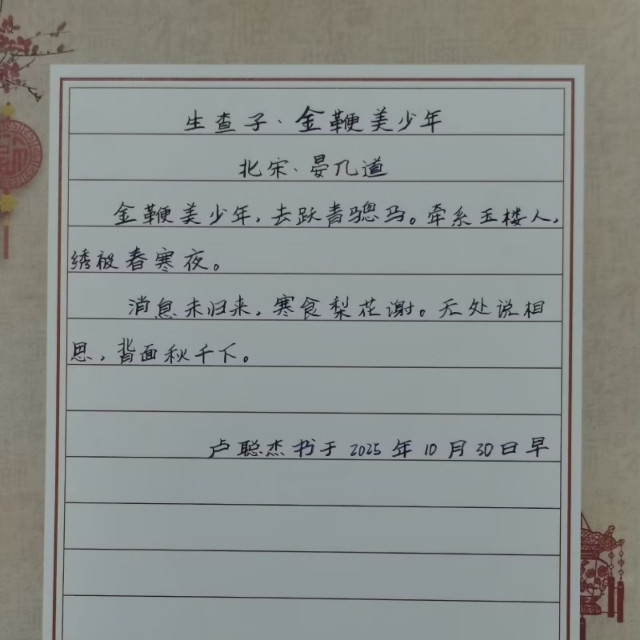 生查子·金鞭美少年
北宋·晏几道
金鞭美少年，去跃青骢马。牵系玉楼人，
绣被春寒夜。
消息未归来，寒食梨花谢。无处说相
思，背面秋千下。
卢聪杰书于2025年10月30日早